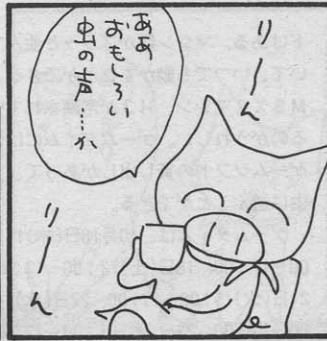 リーーん
ああ
おもしろい
虫の声……か
リーーん